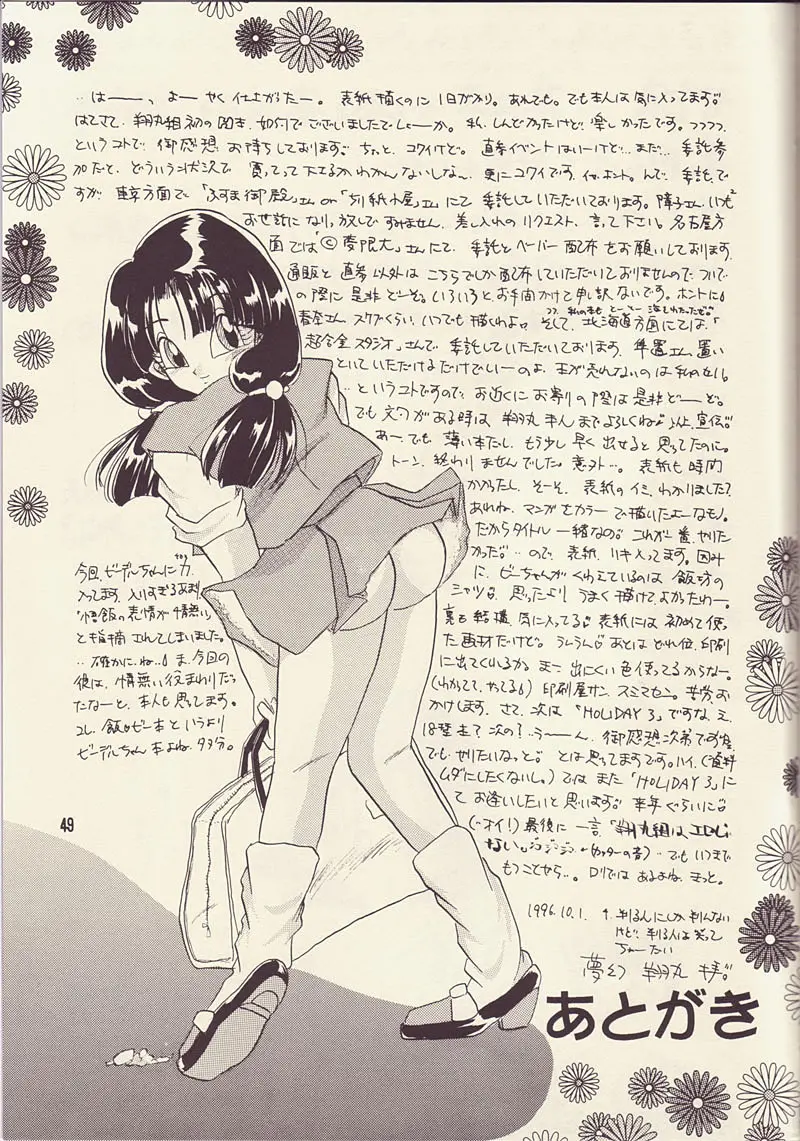 ‥は――っ、よーやく仕上がったー。表紙描くのに1日がかり。あれでも。でも本人は気に入ってます。
はてさて、翔丸組初の  如何でございましたでしょーか。私、しんどかったけど、楽しかったです。フフフフ。
というコトで、御感想お待ちしております。ちょっと、コワイけど。直参イベントはいーけど‥まだ‥委託参
加だと、どういう状況で買って下さるかわかんないしなー。更にコワイです。イヤ、ホント。んで、委託で
すが、東京方面で「ふすま御殿」さん or 「別紙小屋」さんにて委託していただいております。障子さん、いつも
お世話になりっ放しですみません。差し入れのリクエスト、言って下さい。名古屋方
面では「©夢限大」さんにて、委託とペーパー配布をお願いしております。
通販と直参以外はこちらでしか配布していただいておりませんので、ついで
の際に是非どーぞ。いろいろとお手間かけて申し訳ないです。ホントに。
春奈さん、スケブくらい、いつでも描くわよ。そして、北海道方面にては、「
超合金スタジオ」さんで、委託していただいております。隼置さん、置い
といていただけるだけでいーのよ、本が売れないのは私のせい。
‥というコトですので、お近くにお寄りの際は是非どーぞ。
でも文句がある時は、翔丸本人までよろしくね。以上、宣伝。
あー、でも、薄い本だし、もう少し早く出せると思ってたのに。
トーン、終わりませんでした。意外‥。表紙も時間
かかったし。そーそ、表紙のイミ、わかりました?
あれね、マンガをカラーで描いたよーなモノ。
だからタイトル一緒なの。これが一番、やりた
かった。‥ので、表紙、リキ入ってます。因み
に、ビーちゃんがくわえているのは飯坊の
シャツ。思ったよりうまく描けて、よかったわー。
裏も結構、気に入ってる。表紙には初めて使っ
た画材だけど。うふうふ。あとはどれ位、印刷
に出てくれるか。まー、出にくい色使ってるからなー。
(わかってて、やってる)印刷屋サン、スミマセン。苦労お
かけします。さて、次は「HOLIDAY 3」ですな。え、
18禁は?次の?うーん、御感想次第です。
でも、やりたいなっと。とは思ってますです。ハイ。(資料
ムダにしたくないし。)ではまた「HOLIDAY 3」に
てお逢いしたいと思います。来年ぐらいに。
(オイ!)最後に一言、「翔丸組はエロじゃ
ない。」ジジジジー(カッターの音)‥でもいつまで
もつことやら‥。ロリではあるよね、きっと。
今回、ビーデルちゃんに力
入ってます。入りすぎるあまり
「悟飯の表情が情無い」
と指摘されてしまいました。
‥確かに、ね‥。ま、今回の
彼は、情無い役まわりだっ
たなーと、本人も思ってます。
コレ、飯ビー本というより
ビーデルちゃん本よね。多分。
1996.10.1.
判る人にしか判んない
けど、判る人は笑って
ちょーだい
夢幻 翔丸 拝
あとがき
49